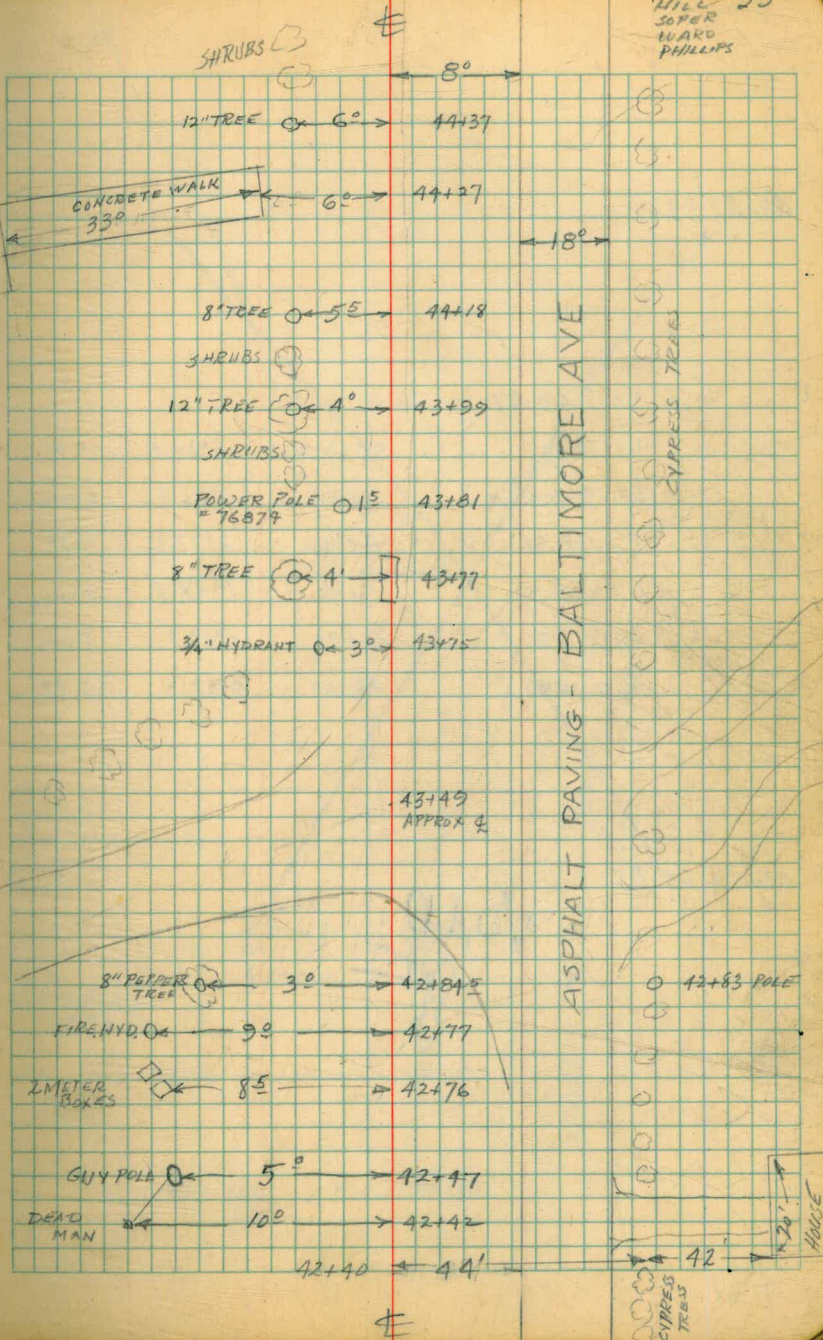 HILL 23
SOPER
WARD
PHILLIPS
℄
SHRUBS
8°
12" TREE 6° 44+37
CONCRETE WALK
33°
6° 44+27
18°
8" TREE 5⁵ 44+18
SHRUBS
12" TREE 4° 43+99
SHRUBS
POWER POLE 1⁵ 43+81
# 76874
8" TREE 4' 43+77
3/4" HYDRANT 3° 43+75
43+49
APPROX ℄
ASPHALT PAVING - BALTIMORE AVE
CYPRESS TREES
8" PEPPER 3° 42+84⁵
TREE
42+83 POLE
FIRE HYD. 9° 42+77
2 METER 8⁵ 42+76
BOXES
GUY POLE 5° 42+47
DEAD 10° 42+42
MAN
42+40 44' 42'
20'
HOUSE
CYPRESS
TREES
℄